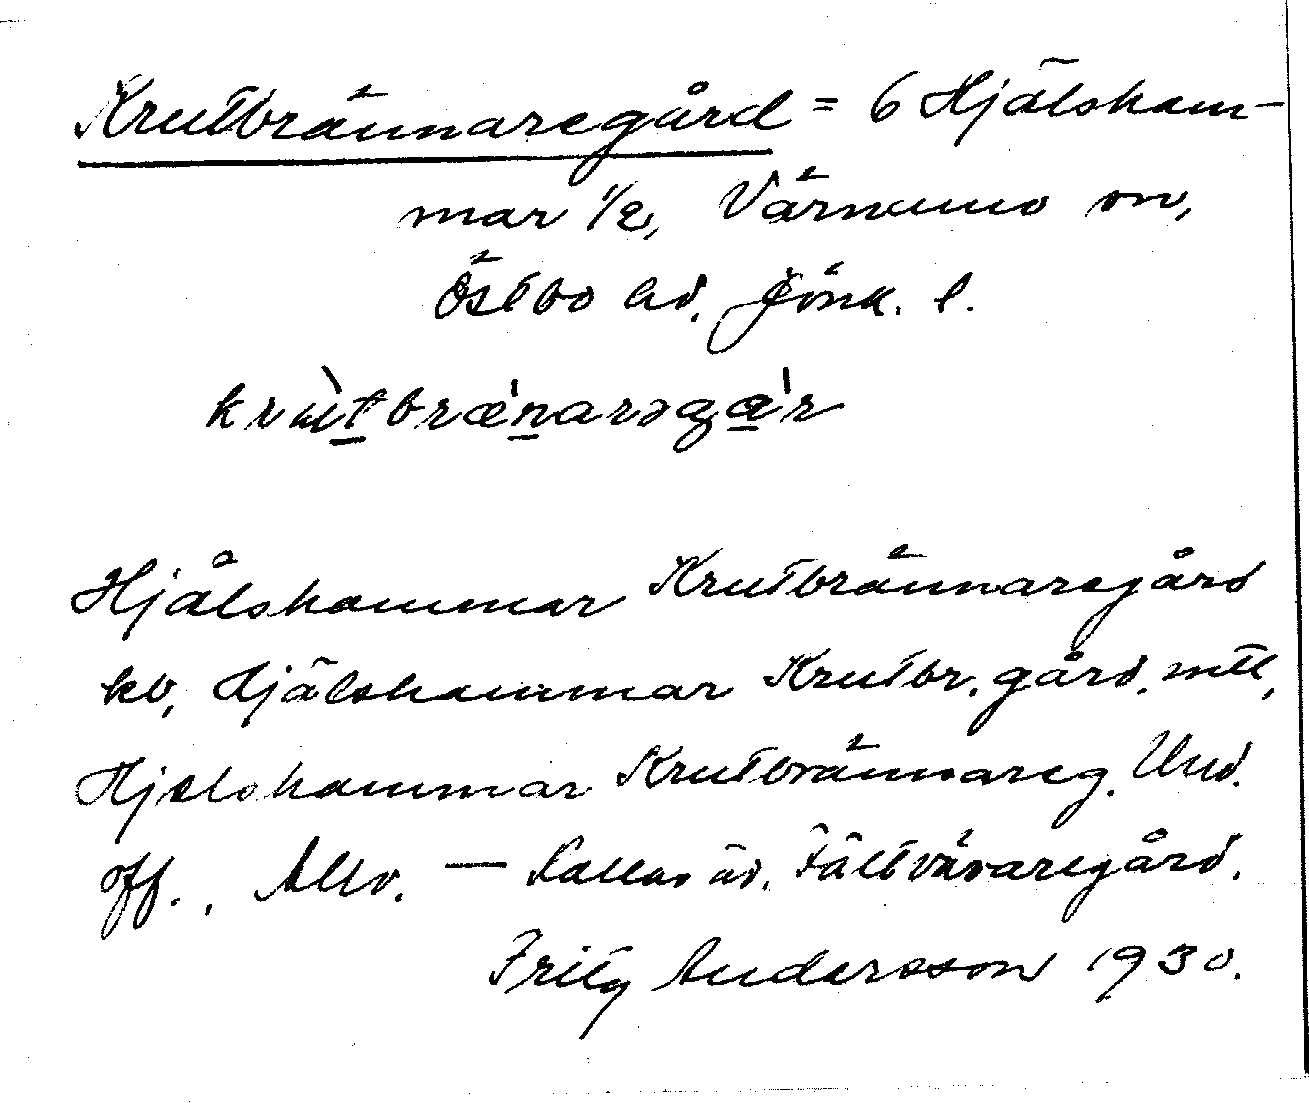 Krutbrännaregård = 6 Hjälsham-
mar 1/2, Värnamo sn,
Östbo hd. Jönk. l.
krùtbræ̀narəgɑ̀r
Hjälshammar Krutbrännaregård
kb, Hjälshammar Krutbr. gård. mtl,
Hjelshammar Krutbrännareg. Und.
off., Allv. — Kallas äv. Fältvävaregård.
Fritz Andersson 1930.